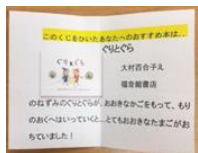 このくじをひいたあなたへのおすすめ本は、、
ぐりとぐら
ぐりとぐら
大村百合子え
福音館書店
のねずみのぐりとぐらが、おおきなかごをもって、もり
のおくへはいっていくと…とてもおおきなたまごがお
ちていました！